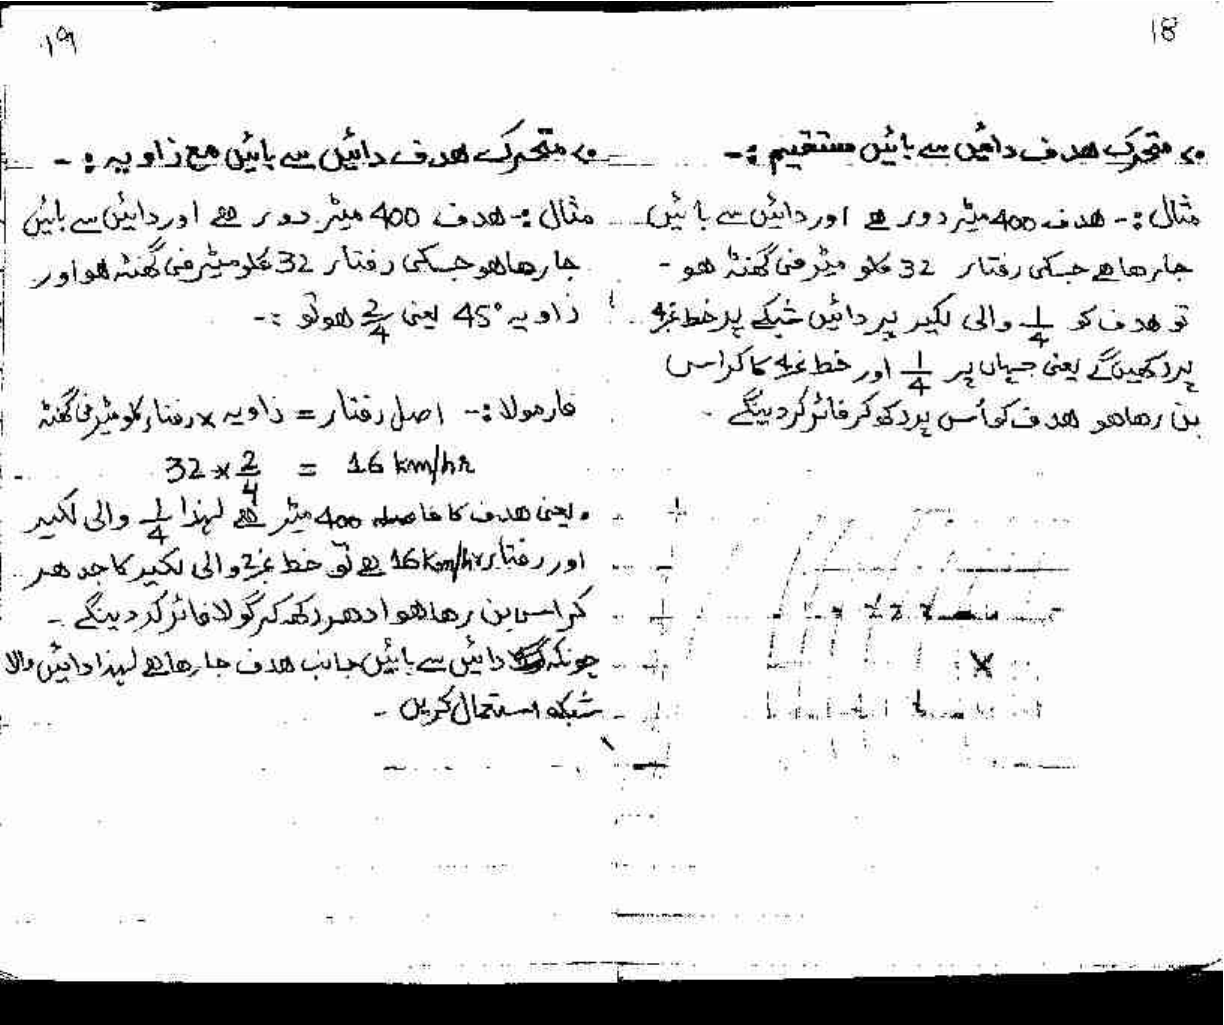 18
متحرک ھدف دائیں سے بائیں مستقیم :-
مثال :- ھدف 400 میٹر دور ھے اور دائیں سے بائیں
جارھا ھے جسکی رفتار 32 کلو میٹر فی گھنٹہ ھو -
تو ھدف کو 1/4 والی لکیر پر دائیں شبکے پر خط نمبر 4
پر رکھیں گے یعنی جہاں پر 1/4 اور خط نمبر 4 کا کراس
بن رھا ھو ھدف کو اُس پر رکھ کر فائر کر دینگے -
19
متحرک ھدف دائیں سے بائیں مع زاویہ :-
مثال :- ھدف 400 میٹر دور ھے اور دائیں سے بائیں
جارھا ھو جسکی رفتار 32 کلو میٹر فی گھنٹہ ھو اور
زاویہ 45° یعنی 2/4 ھو تو :-
فارمولا :- اصل رفتار = زاویہ × رفتار کلو میٹر فی گھنٹہ
32 × 2/4 = 16 km/hr
یعنی ھدف کا فاصلہ 400 میٹر ھے لہذا 1/4 والی لکیر
اور رفتار 16 km/hr ھے تو خط نمبر 2 والی لکیر کا جدھر
کراس بن رھا ھو ادھر رکھ کر گولا فائر کر دینگے -
چونکہ دائیں سے بائیں جانب ھدف جارھا ھے لہذا دائیں والا
شبکہ استعمال کریں -